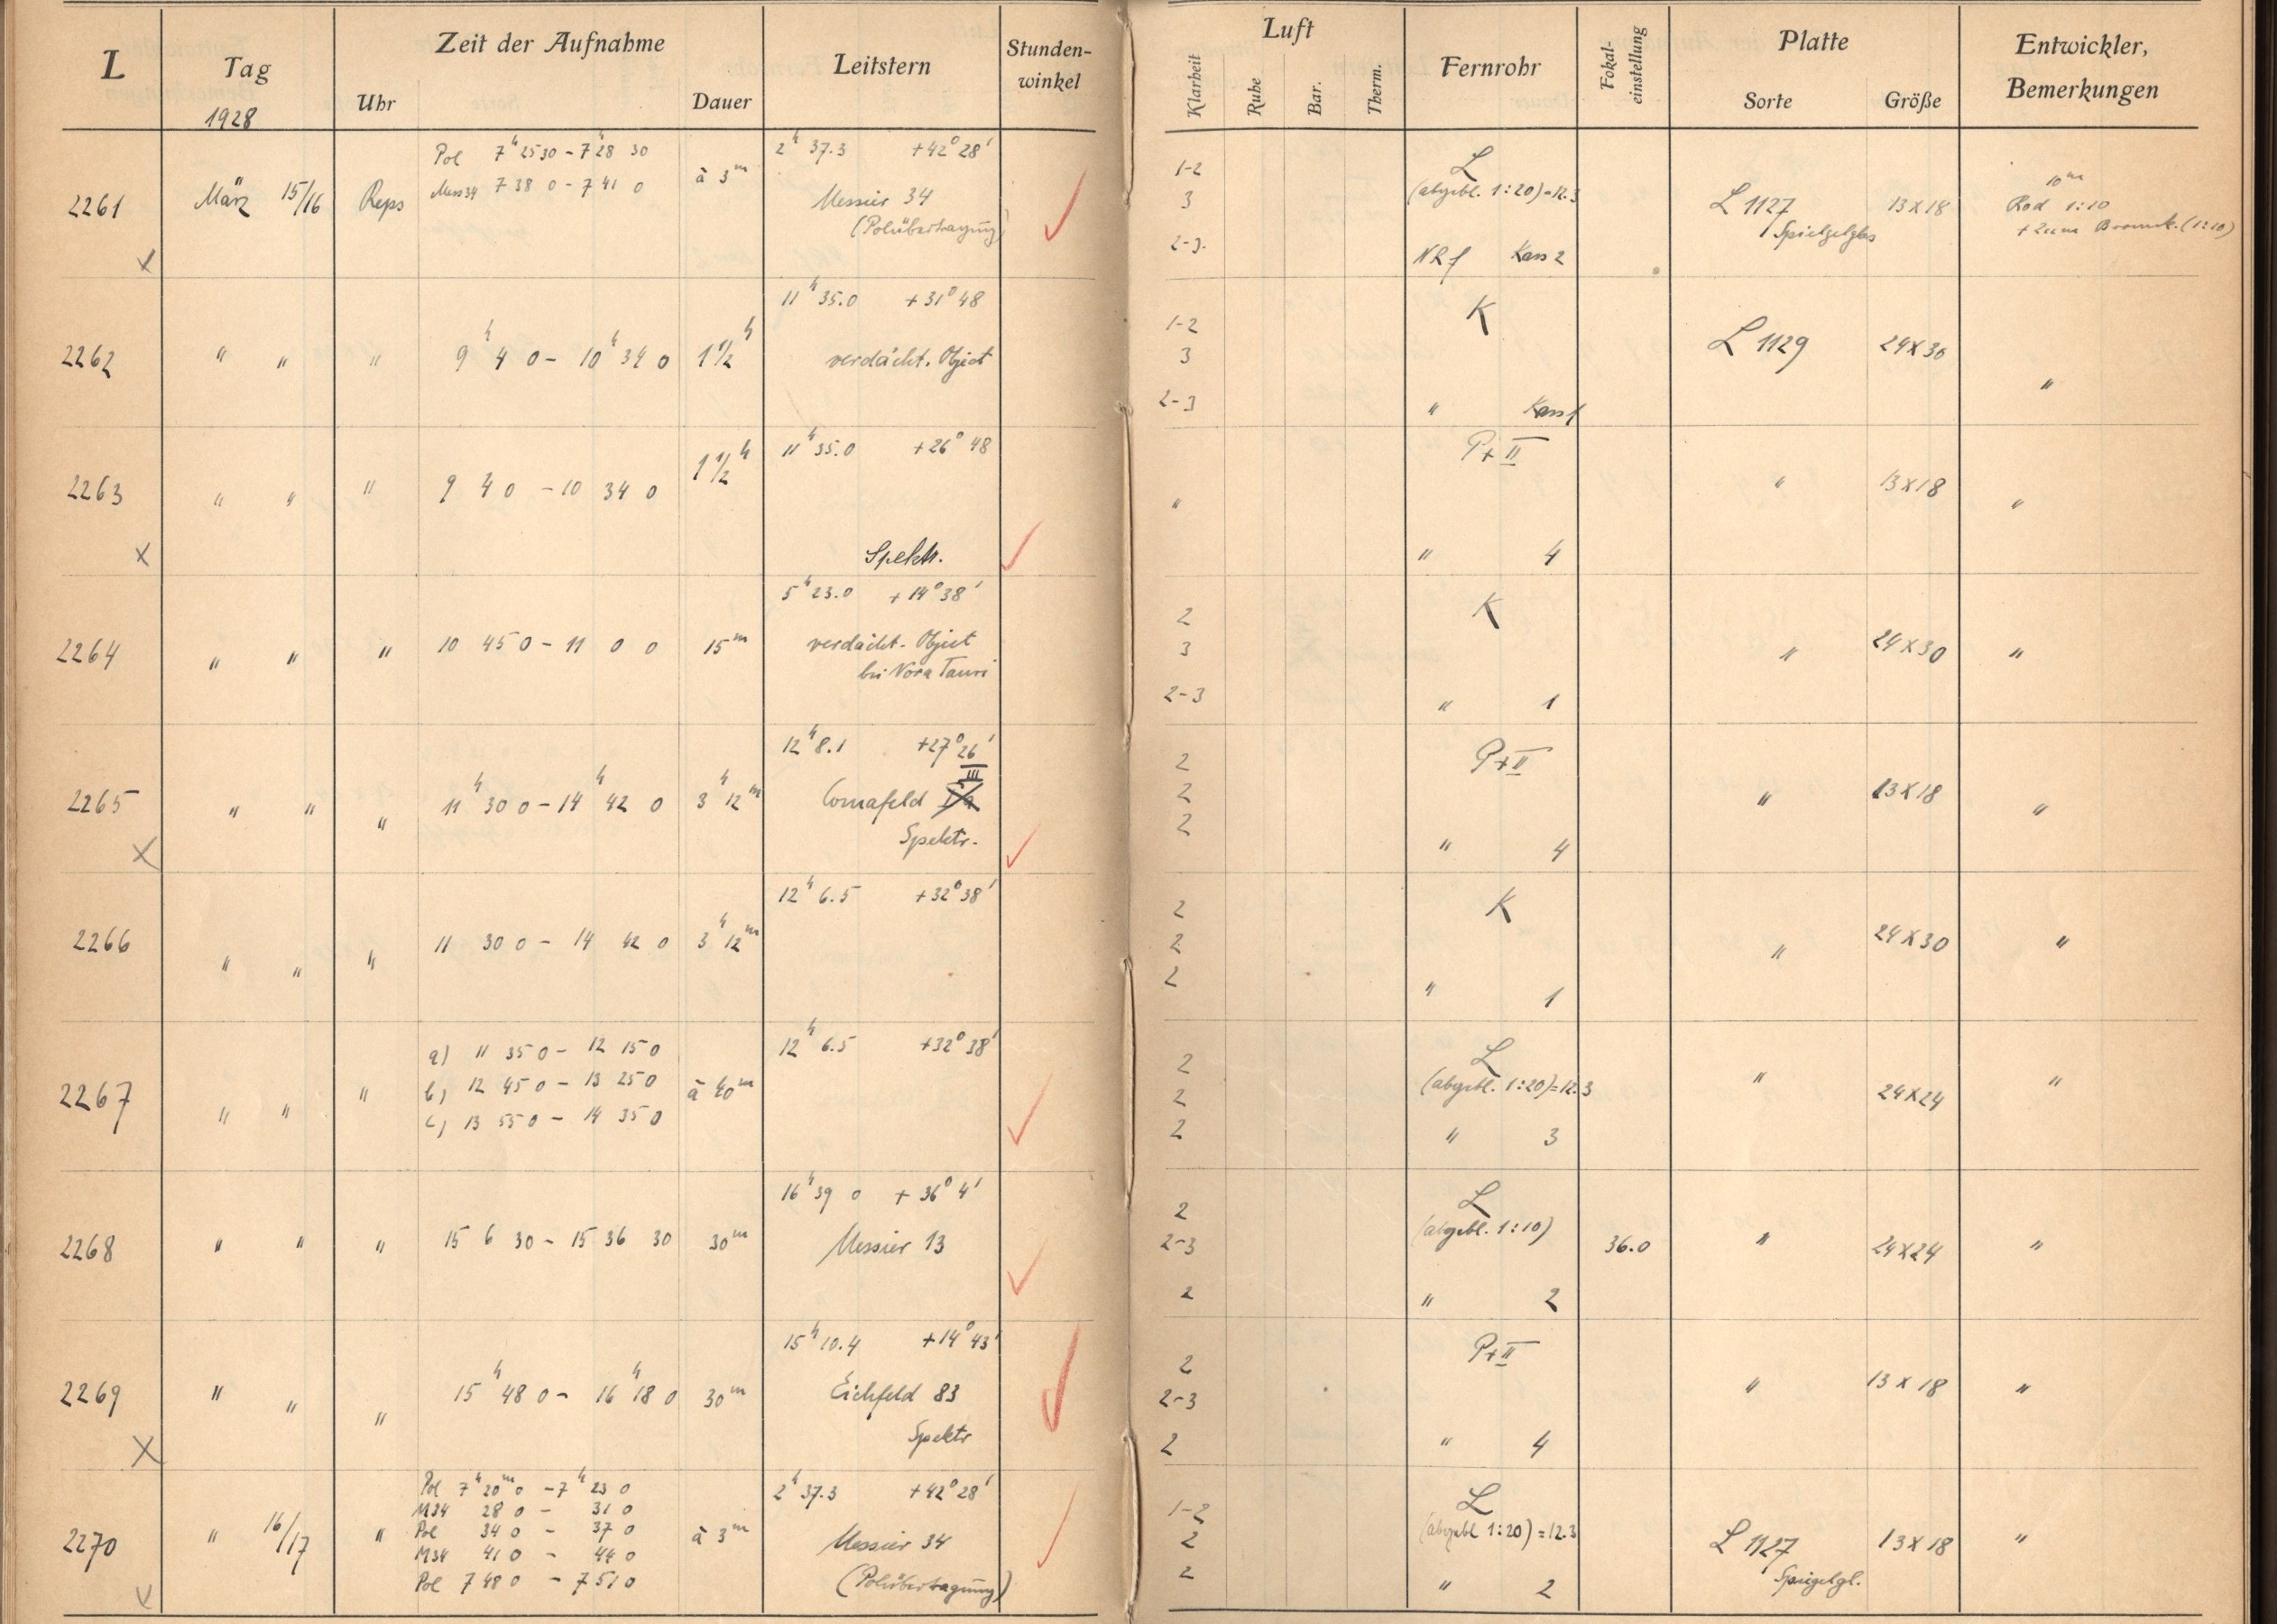 L Tag 1928 Zeit der Aufnahme Uhr Dauer Leitstern Stunden-winkel Luft Klarheit Ruhe Bar. Therm. Fernrohr Fokal-einstellung Platte Sorte Größe Entwickler, Bemerkungen
Pol 7h 25 30 - 7h 28 30 2h 37.3 +42° 28' 1-2 L 10m
2261 März 15/16 Reps Mess34 7 38 0 - 7 41 0 à 3m Messier 34 3 (abgebl. 1:20)=12.3 L 1127 13x18 Rod 1:10
(Polübertragung) 2-3. Kass 2 Spielgelglas (1:10)
x
11h 35.0 +31° 48 1-2 K
2262 " " " 9h 4 0 - 10h 34 0 1 1/2h verdächt. Object 3 L 1129 24x30 "
2-3 " Kass 1
11h 35.0 +26° 48 P+II
2263 " " " 9 4 0 - 10 34 0 1 1/2h " " 13x18 "
x Spektr. " 4
5h 23.0 +14° 38' 2 K
2264 " " " 10 45 0 - 11 0 0 15m verdächt. Object 3 " 24x30 "
bei Nova Tauri 2-3 " 1
12h 8.1 +27° 26' 2 P+II
III
2265 " " " 11h 30 0 - 14h 42 0 3h 12m Comafeld 2 " 13x18 "
x Spektr. 2 " 4
12h 6.5 +32° 38' 2 K
2266 " " " 11 30 0 - 14 42 0 3h 12m 2 " 24x30 "
2 " 1
a) 11 35 0 - 12 15 0 12h 6.5 +32° 38' 2 L
2267 " " " b) 12 45 0 - 13 25 0 à 40m 2 (abgebl. 1:20)=12.3 " 24x24 "
c) 13 55 0 - 14 35 0 2 " 3
16h 39 0 +36° 4' 2 L
2268 " " " 15 6 30 - 15 36 30 30m Messier 13 2-3 (abgebl. 1:10) 36.0 " 24x24 "
2 " 2
15h 10.4 +14° 43' 2 P+II
2269 " " " 15h 48 0 - 16h 18 0 30m Eichfeld 83 2-3 " 13x18 "
x Spektr 2 " 4
Pol 7h 20m 0 - 7h 23 0 2h 37.3 +42° 28' 1-2 L
M34 28 0 - 31 0
2270 " 16/17 " Pol 34 0 - 37 0 à 3m Messier 34 2 (abgebl 1:20)=12.3 L 1127 13x18 "
M34 41 0 - 44 0
Pol 7 48 0 - 7 51 0 (Polübertragung) 2 " 2 Spiegelgl.